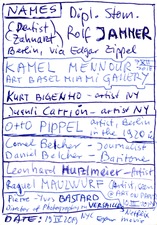 NAMES Dipl. Stom.
(Dentist) Rolf JAMMER
Zahnarzt
Berlin, via Edgar Zippel
KAMEL MENNOUR
ART BASEL MIAMI GALLERY
KURT BIGENHO - artist NY
Juanli Carrión - artist NY
OTTO PIPPEL Artist, Berlin
in the 1920s
Cornel Belcher - Journalist
Daniel Belcher - Baritone
Leonhard HURZLMEIER - Artist
Raquel MAULWURF
Pierre-Yves BASTARD
Director of Photography in VERSAILLES
DATE: NYC